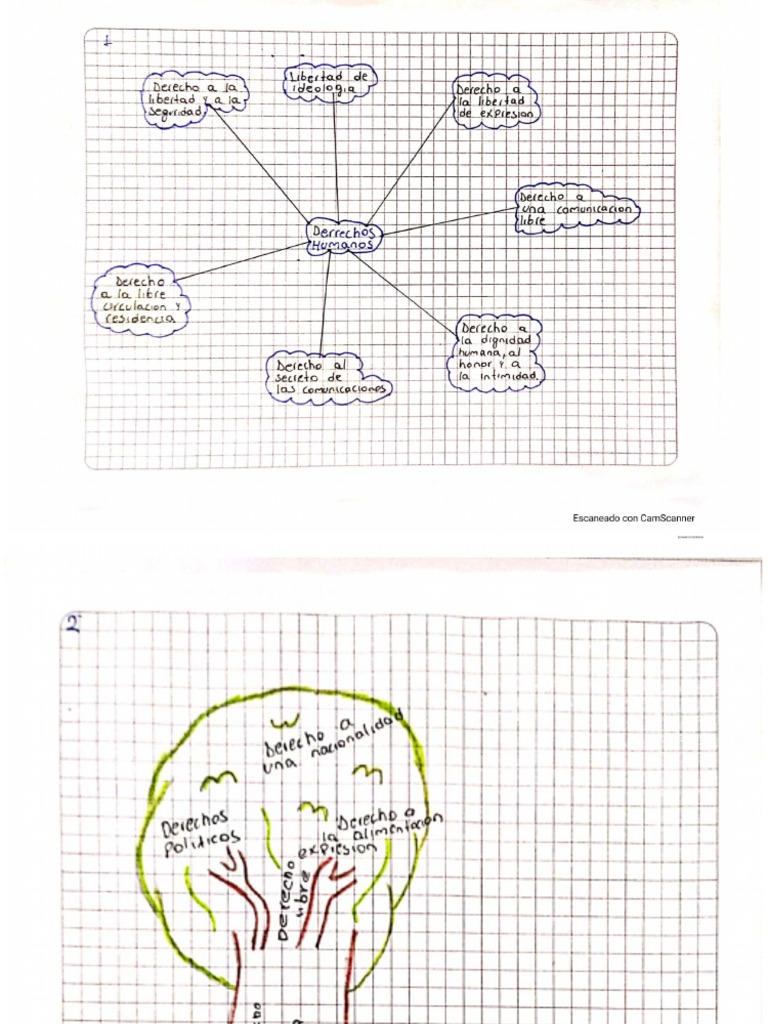 1
Derecho a la
libertad y a la
seguridad
Libertad de
ideologia
Derecho a
la libertad
de expresion
Derecho a
una comunicacion
libre
Derrechos
Humanos
Derecho
a la libre
circulacion y
residencia
Derecho al
secreto de
las comunicaciones
Derecho a
la dignidad
humana, al
honor y a
la intimidad.
Escaneado con CamScanner
2
Derecho a
una nacionalidad
Derechos
politicos
Derecho a
la alimentacion
expresion
Derecho